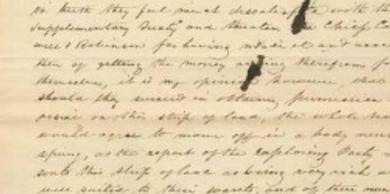 they feel much dissatisfied with the
Supplementary Treaty and threaten the Chiefs
& Robinson for having made it and
of getting the money arising therefrom
themselves, it is my opinion however, that
should they succeed in obtaining permission
on this strip of land, the whole
would agree to move off in a body next
spring, as the report of the exploring Party
this strip of land as being very rich
well suited to their wants, and of their